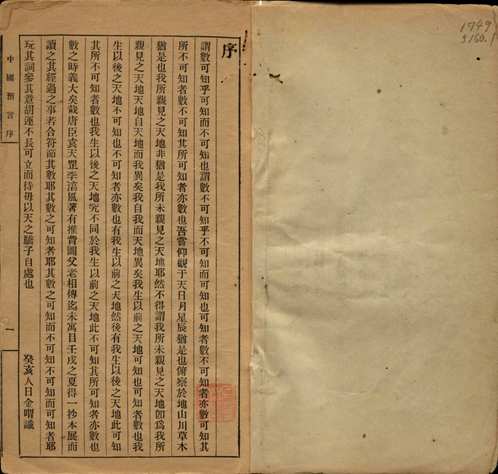 序
謂數可知乎可知而不可知也謂數不可知乎不可知而可知也可知者數不可知者亦數也可知其
所不可知者數不知其所可知者亦數也吾嘗仰觀于天日月星辰猶是也俯察於地山川草木
猶是也我所親見之天地非猶是我所未親見之天地耶然不得謂我所未親見之天地卽爲我所
親見之天地天地自天地而我異矣我自我而天地異矣我生以前之天地可知也可知者數也我
生以後之天地不可知也不可知者亦數也有我生以前之天地然後有我生以後之天地此可知
其所不可知者數也我生以後之天地究不同於我生以前之天地此不可知其所可知者亦數也
數之時義大矣哉唐臣袁天罡李淳風著有推背圖父老相傳迄未寓目壬戌之夏得一抄本展而
讀之其經過之事若合符而其數耶其數之可知者耶其數之可知而不可知不可知而可知者耶
玩其詞參其意胡運不長可立而待毋以天之驕子自處也
癸亥人日金喟識
中國預言 序
一
1749